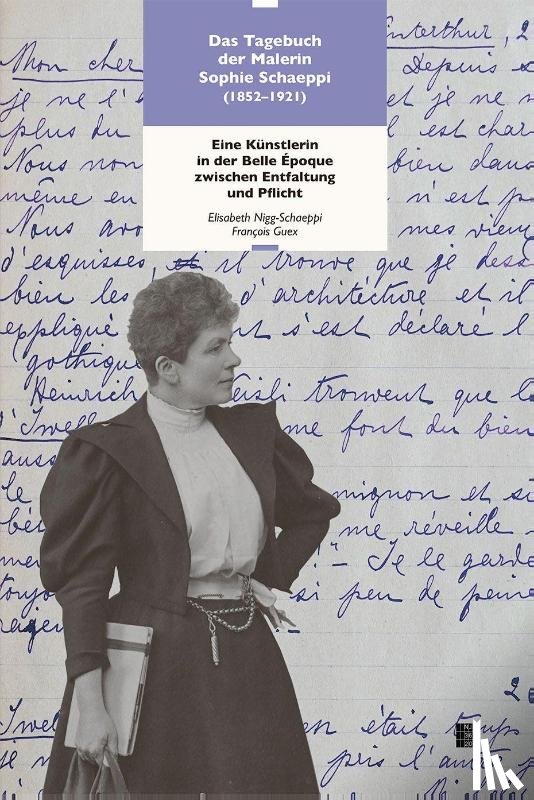 Das Tagebuch
der Malerin
Sophie Schaeppi
(1852–1921)
Eine Künstlerin
in der Belle Époque
zwischen Entfaltung
und Pflicht
Elisabeth Nigg-Schaeppi
François Guex
Mon cher
Depuis
je ne l'é
et je ne
plus du
est char
Nous non
bien dans
même en
n'est p
Nous avo
mes vieux
d'esquisses, et il trouve que je dess
bien les d'architecture et il
expliqué s'est déclaré l
gothique
Heinrich trouvent que le
me font du bien
auss
le mignon et si
me réveille
Je le garde
toujo si peu de peine
était temps
je pris l'aut